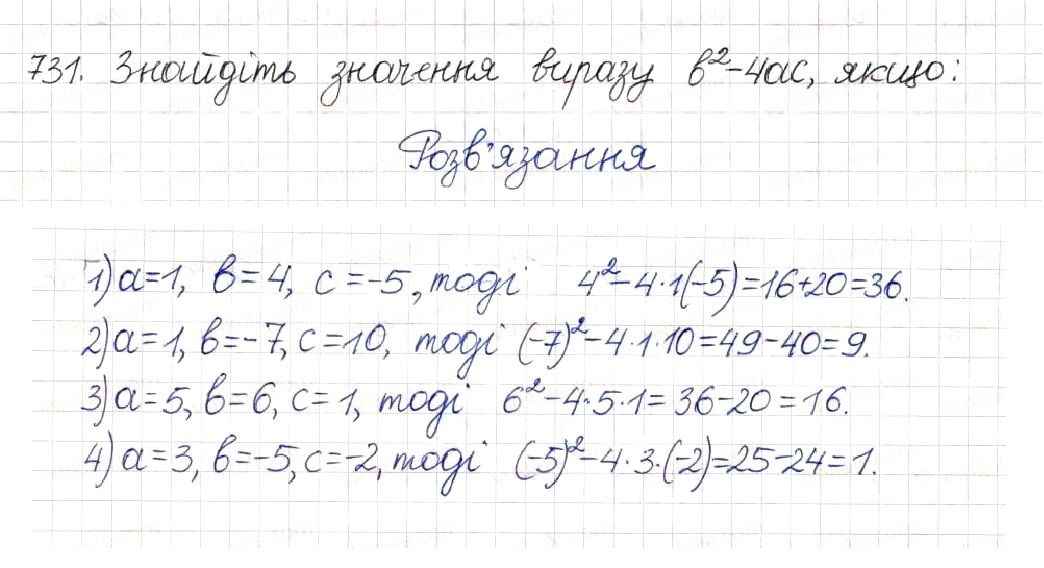 731. Знайдіть значення виразу b²-4ac, якщо:
Розв'язання
1) a=1, b=4, c=-5, тоді 4²-4·1(-5)=16+20=36.
2) a=1, b=-7, c=10, тоді (-7)²-4·1·10=49-40=9.
3) a=5, b=6, c=1, тоді 6²-4·5·1=36-20=16.
4) a=3, b=-5, c=-2, тоді (-5)²-4·3·(-2)=25-24=1.